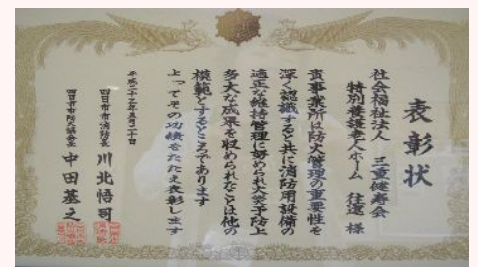 表彰状
社会福祉法人 三重健寿会
特別養護老人ホーム 往還 様
貴事業所は防火管理の重要性を
深く認識すると共に消防用設備の
適正な維持管理に努められ火災予防上
多大な成果を収められたことは他の
模範とするところであります
よってその功績をたたえ表彰します
平成二十三年五月二十日
四日市市消防長 川北悟司
四日市市防火協会長 中田基之